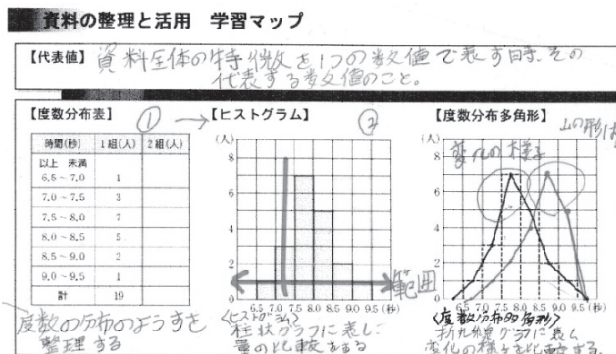 資料の整理と活用 学習マップ
【代表値】 資料全体の特徴を1つの数値で表す時、その
代表する数値のこと。
【度数分布表】 ① → 【ヒストグラム】 ② 【度数分布多角形】 山の形
時間(秒) 1組(人) 2組(人)
以上 未満
6.5~7.0 1
7.0~7.5 3
7.5~8.0 7
8.0~8.5 5
8.5~9.0 2
9.0~9.5 1
計 19
度数の分布のようすを
整理する
(人)
8
6
4
2
0
6.5 7.0 7.5 8.0 8.5 9.0 9.5 (秒)
範囲
<ヒストグラム>
柱状グラフに表し
量の比較をする
(人)
変化の様子
8
6
4
2
0
6.5 7.0 7.5 8.0 8.5 9.0 9.5 (秒)
<度数分布多角形>
折れ線グラフに表し
変化の様子を比較する